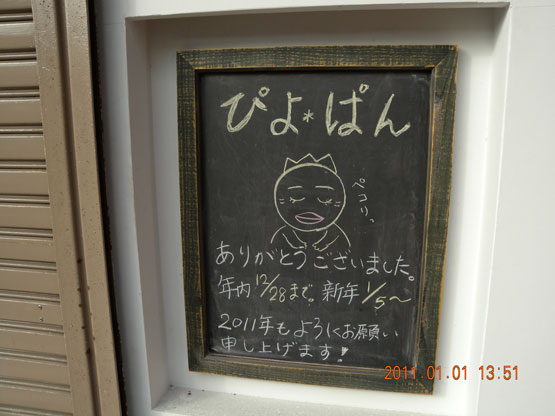 ぴよ*ぱん
ペコリ。
ありがとうございました。
年内12/28まで。新年1/5〜
2011年もよろしくお願い
申し上げます!
2011.01.01 13:51